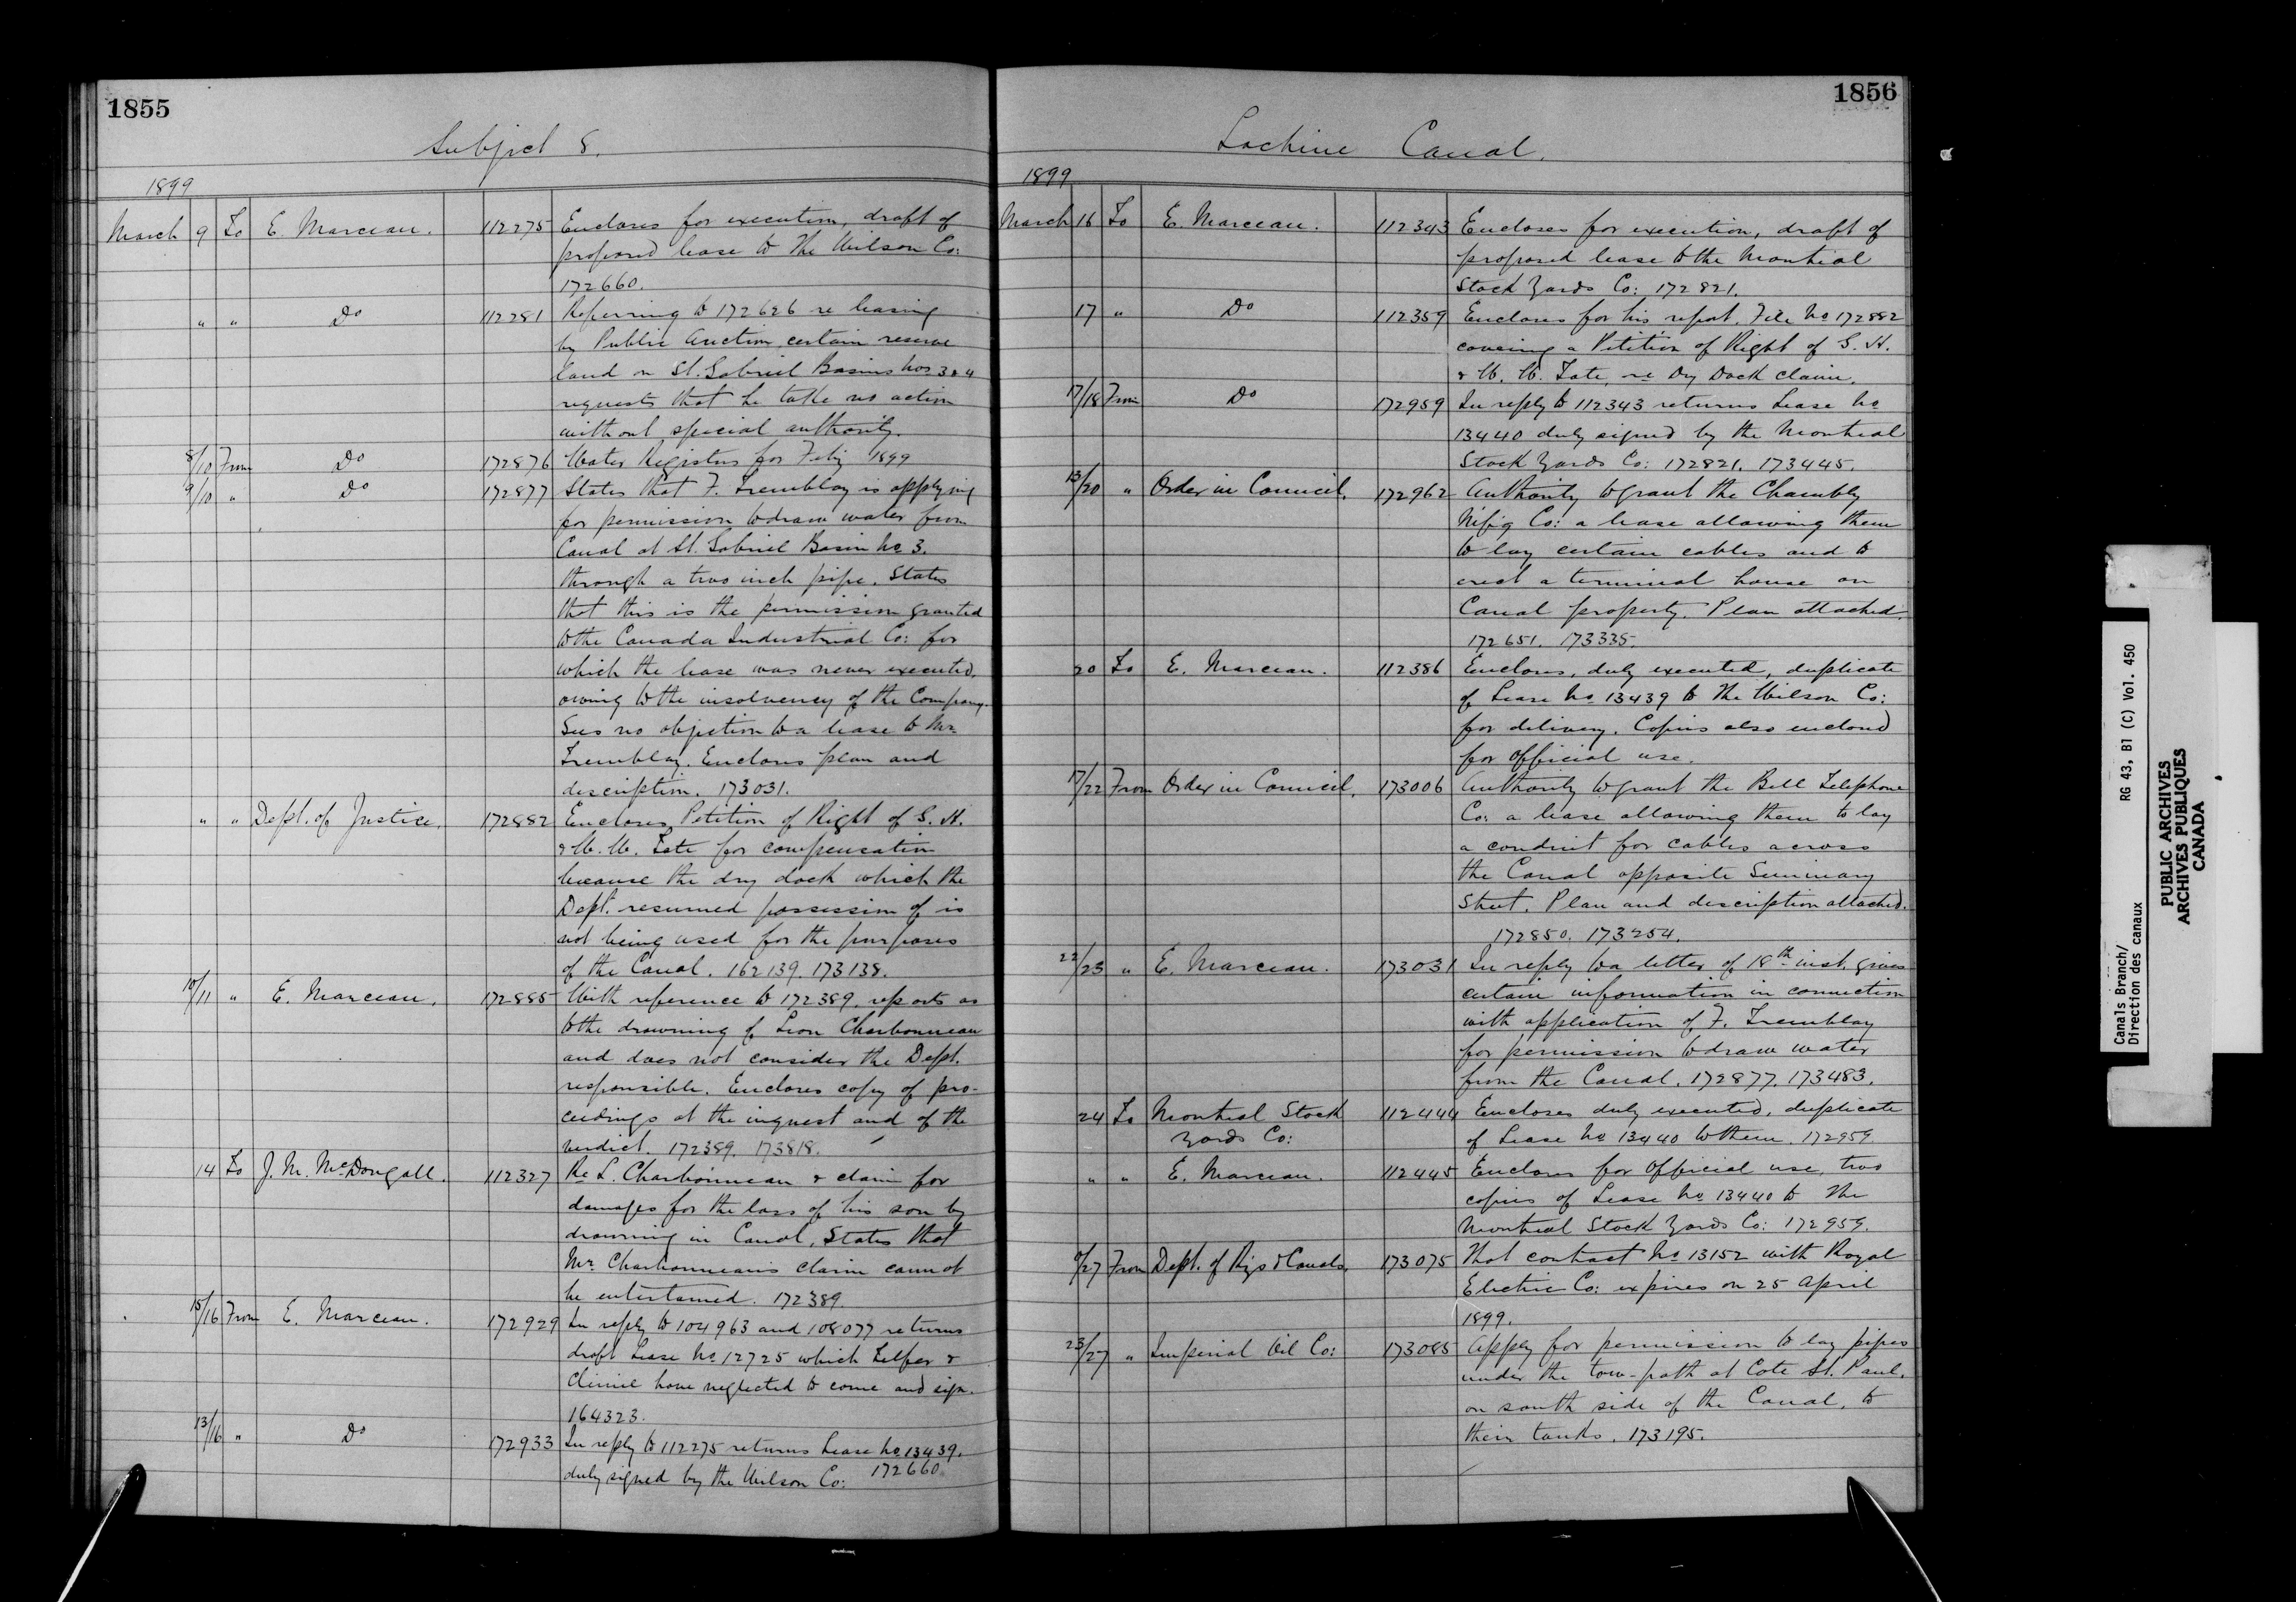 1855
Subject 8.
1899
March 9 To E. Marceau. 112275 Encloses for execution, draft of
proposed lease to the Wilson Co:
172660.
" " Do 112281 Referring to 172626 re leasing
by Public Auction certain reserve
land on St. Gabriel Basins Nos 3 & 4
requests that he take no action
without special authority.
8/10 From Do 172876 Water Registers for Feby 1899
9/10 " Do 172877 States that F. Tremblay is applying
for permission to draw water from
Canal at St. Gabriel Basin No 3.
through a two inch pipe. States
that this is the permission granted
to the Canada Industrial Co: for
which the lease was never executed,
owing to the insolvency of the Company.
Sees no objection to a lease to Mr
Tremblay. Encloses plan and
description. 173031.
" " Dept. of Justice. 172882 Encloses Petition of Right of S. H.
& W. W. Tate for compensation
because the dry dock which the
Dept. resumed possession of is
not being used for the purposes
of the Canal. 162139. 173138.
10/11 " E. Marceau. 172885 With reference to 172389, reports as
to the drowning of Leon Charbonneau
and does not consider the Dept.
responsible. Encloses copy of pro-
ceedings at the inquest and of the
verdict. 172389. 173818.
14 To J. M. McDougall. 112327 Re L. Charbonneau & claim for
damages for the loss of his son by
drowning in Canal, States that
Mr. Charbonneau's claim cannot
be entertained. 172389.
15/16 From E. Marceau. 172929 In reply to 104963 and 108077 returns
draft Lease No 12725 which Telfer &
Climie have neglected to come and sign.
164323.
13/16 " Do 172933 In reply to 112275 returns Lease No 13439.
duly signed by the Wilson Co: 172660
1856
Lachine Canal.
1899
March 16 To E. Marceau. 112343 Encloses for execution, draft of
proposed lease to the Montreal
Stock Yards Co: 172821.
17 " Do 112359 Encloses for his report, File No 172882
covering a Petition of Right of S. H.
& W. W. Tate, re Dry Dock claim.
17/18 From Do 172959 In reply to 112343 returns Lease No
13440 duly signed by the Montreal
Stock Yards Co: 172821. 173445.
13/20 " Order in Council. 172962 Authority to grant the Chambly
M'f'g Co: a lease allowing them
to lay certain cables and to
erect a terminal house on
Canal property. Plan attached.
172651. 173335.
20 To E. Marceau. 112386 Encloses, duly executed, duplicate
of Lease No 13439 to the Wilson Co:
for delivery. Copies also enclosed
for Official use.
17/22 From Order in Council. 173006 Authority to grant the Bell Telephone
Co: a lease allowing them to lay
a conduit for cables across
the Canal opposite Seminary
Street. Plan and description attached.
172850. 173254.
22/23 " E. Marceau. 173031 In reply to a letter of 18th inst. gives
certain information in connection
with application of F. Tremblay
for permission to draw water
from the Canal. 172877. 173483.
24 To Montreal Stock 112444 Encloses duly executed, duplicate
Yards Co: of Lease No 13440 to them. 172959
" " E. Marceau. 112445 Encloses for Official use, two
copies of Lease No 13440 to the
Montreal Stock Yards Co: 172959.
/27 From Dept. of Rys & Canals. 173075 That contract No 13152 with Royal
Electric Co: expires on 25 April
1899.
23/27 " Imperial Oil Co: 173085 Apply for permission to lay pipes
under the tow-path at Cote St. Paul,
on south side of the Canal, to
their tanks. 173195.
Canals Branch/ RG 43, B1 (C) Vol. 450
Direction des canaux
PUBLIC ARCHIVES
ARCHIVES PUBLIQUES
CANADA